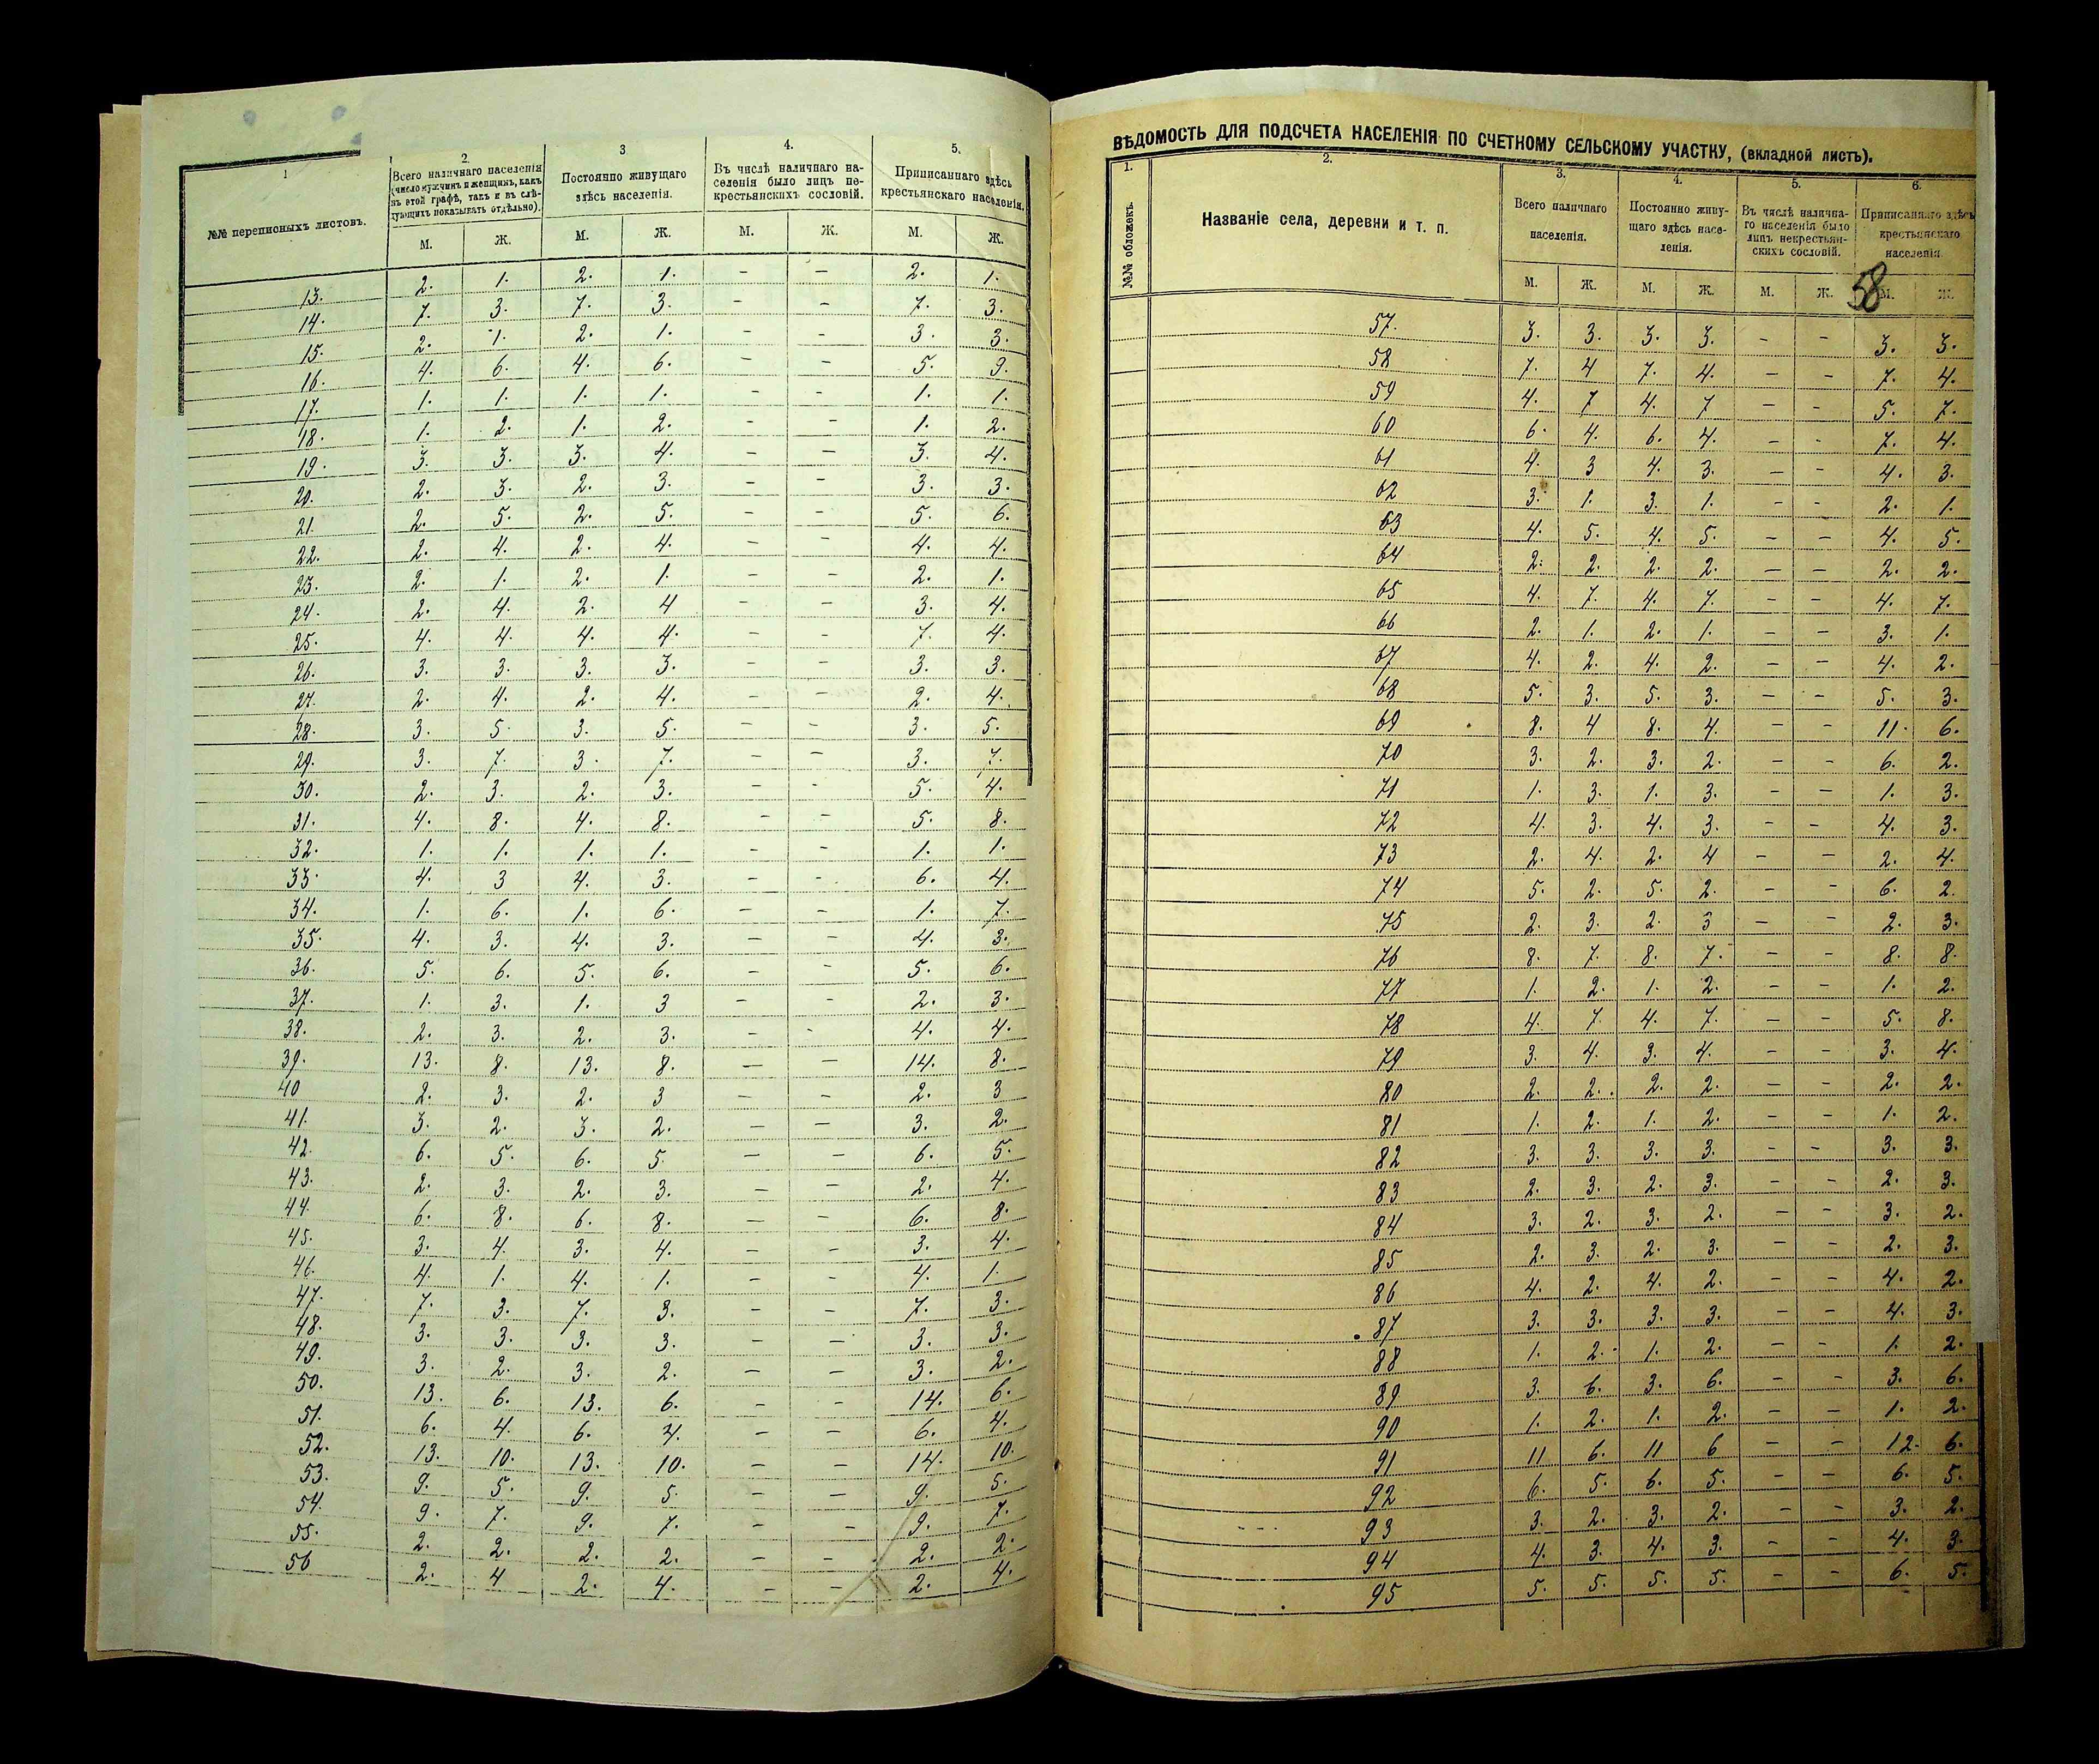 1
2.
3
4.
5.
№№ переписныхъ листовъ.
Всего наличнаго населенія
(число мужчинъ и женщинъ, какъ
въ этой графѣ, такъ и въ слѣ-
дующихъ показывать отдѣльно).
Постоянно живущаго
здѣсь населенія.
Въ числѣ наличнаго на-
селенія было лицъ не-
крестьянскихъ сословій.
Приписаннаго здѣсь
крестьянскаго населенія.
М. Ж. М. Ж. М. Ж. М. Ж.
13. 2. 1. 2. 1. – – 2. 1.
14. 7. 3. 7. 3. – – 7. 3.
15. 2. 1. 2. 1. – – 3. 3.
16. 4. 6. 4. 6. – – 5. 9.
17. 1. 1. 1. 1. – – 1. 1.
18. 1. 2. 1. 2. – – 1. 2.
19. 3. 3. 3. 4. – – 3. 4.
20. 2. 3. 2. 3. – – 3. 3.
21. 2. 5. 2. 5. – – 5. 6.
22. 2. 4. 2. 4. – – 4. 4.
23. 2. 1. 2. 1. – – 2. 1.
24. 2. 4. 2. 4 – – 3. 4.
25. 4. 4. 4. 4. – – 7. 4.
26. 3. 3. 3. 3. – – 3. 3.
27. 2. 4. 2. 4. – – 2. 4.
28. 3. 5. 3. 5. – – 3. 5.
29. 3. 7. 3. 7. – – 3. 7.
30. 2. 3. 2. 3. – – 5. 4.
31. 4. 8. 4. 8. – – 5. 8.
32. 1. 1. 1. 1. – – 1. 1.
33. 4. 3 4. 3. – – 6. 4.
34. 1. 6. 1. 6. – – 1. 7.
35. 4. 3. 4. 3. – – 4. 3.
36. 5. 6. 5. 6. – – 5. 6.
37. 1. 3. 1. 3 – – 2. 3.
38. 2. 3. 2. 3. – – 4. 4.
39. 13. 8. 13. 8. – – 14. 8.
40 2. 3. 2. 3 – – 2. 3
41. 3. 2. 3. 2. – – 3. 2.
42. 6. 5. 6. 5. – – 6. 5.
43. 2. 3. 2. 3. – – 2. 4.
44. 6. 8. 6. 8. – – 6. 8.
45. 3. 4. 3. 4. – – 3. 4.
46. 4. 1. 4. 1. – – 4. 1.
47. 7. 3. 7. 3. – – 7. 3.
48. 3. 3. 3. 3. – – 3. 3.
49. 3. 2. 3. 2. – – 3. 2.
50. 13. 6. 13. 6. – – 14. 6.
51. 6. 4. 6. 4. – – 6. 4.
52. 13. 10. 13. 10. – – 14. 10.
53. 9. 5. 9. 5. – – 9. 5.
54. 9. 7. 9. 7. – – 9. 7.
55. 2. 2. 2. 2. – – 2. 2.
56 2. 4 2. 4. – – 2. 4.
ВѢДОМОСТЬ ДЛЯ ПОДСЧЕТА НАСЕЛЕНІЯ ПО СЧЕТНОМУ СЕЛЬСКОМУ УЧАСТКУ, (вкладной листъ).
1.
2.
3.
4.
5.
6.
№№ обложекъ.
Названіе села, деревни и т. п.
Всего наличнаго
населенія.
Постоянно живу-
щаго здѣсь насе-
ленія.
Въ числѣ налична-
го населенія было
лицъ некрестьян-
скихъ сословій.
Приписаннаго здѣсь
крестьянскаго
населенія
58
М. Ж. М. Ж. М. Ж. М. Ж.
57. 3. 3. 3. 3. – – 3. 3.
58 7. 4 7. 4. – – 7. 4.
59 4. 7 4. 7 – – 5. 7.
60 6. 4. 6. 4. – – 7. 4.
61 4. 3 4. 3. – – 4. 3.
62 3. 1. 3. 1. – – 2. 1.
63 4. 5. 4. 5. – – 4. 5.
64 2. 2. 2. 2. – – 2. 2.
65 4. 7. 4. 7. – – 4. 7.
66 2. 1. 2. 1. – – 3. 1.
67 4. 2. 4. 2. – – 4. 2.
68 5. 3. 5. 3. – – 5. 3.
69 8. 4 8. 4. – – 11. 6.
70 3. 2. 3. 2. – – 6. 2.
71 1. 3. 1. 3. – – 1. 3.
72 4. 3. 4. 3. – – 4. 3.
73 2. 4. 2. 4 – – 2. 4.
74 5. 2. 5. 2. – – 6. 2
75 2. 3. 2. 3 – – 2. 3.
76 8. 7. 8. 7. – – 8. 8.
77 1. 2. 1. 2. – – 1. 2.
78 4. 7. 4. 7. – – 5. 8.
79 3. 4. 3. 4. – – 3. 4.
80 2. 2. 2. 2. – – 2. 2.
81 1. 2. 1. 2. – – 1. 2.
82 3. 3. 3. 3. – – 3. 3.
83 2. 3. 2. 3. – – 2. 3.
84 3. 2. 3. 2. – – 3. 2.
85 2. 3. 2. 3. – – 2. 3.
86 4. 2. 4. 2. – – 4. 2.
87 3. 3. 3. 3. – – 4. 3.
88 1. 2. 1. 2. – – 1. 2.
89 3. 6. 3. 6. – – 3. 6.
90 1. 2. 1. 2. – – 1. 2.
91 11 6. 11 6 – – 12. 6.
92 6. 5. 6. 5. – – 6. 5.
93 3. 2. 3. 2. – – 3. 2.
94 4. 3. 4. 3. – – 4. 3.
95 5. 5. 5. 5. – – 6. 5.